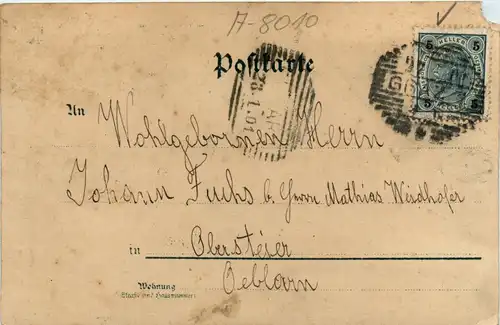 A-8010
Postkarte
5 HELLER 5
28.1.01
An Wohlgebornen Herrn
Johann Fuchs b. Herrn Mathias Weidhofer
in Obersteier
Oeblarn
Wohnung
(Straße und Hausnummer)